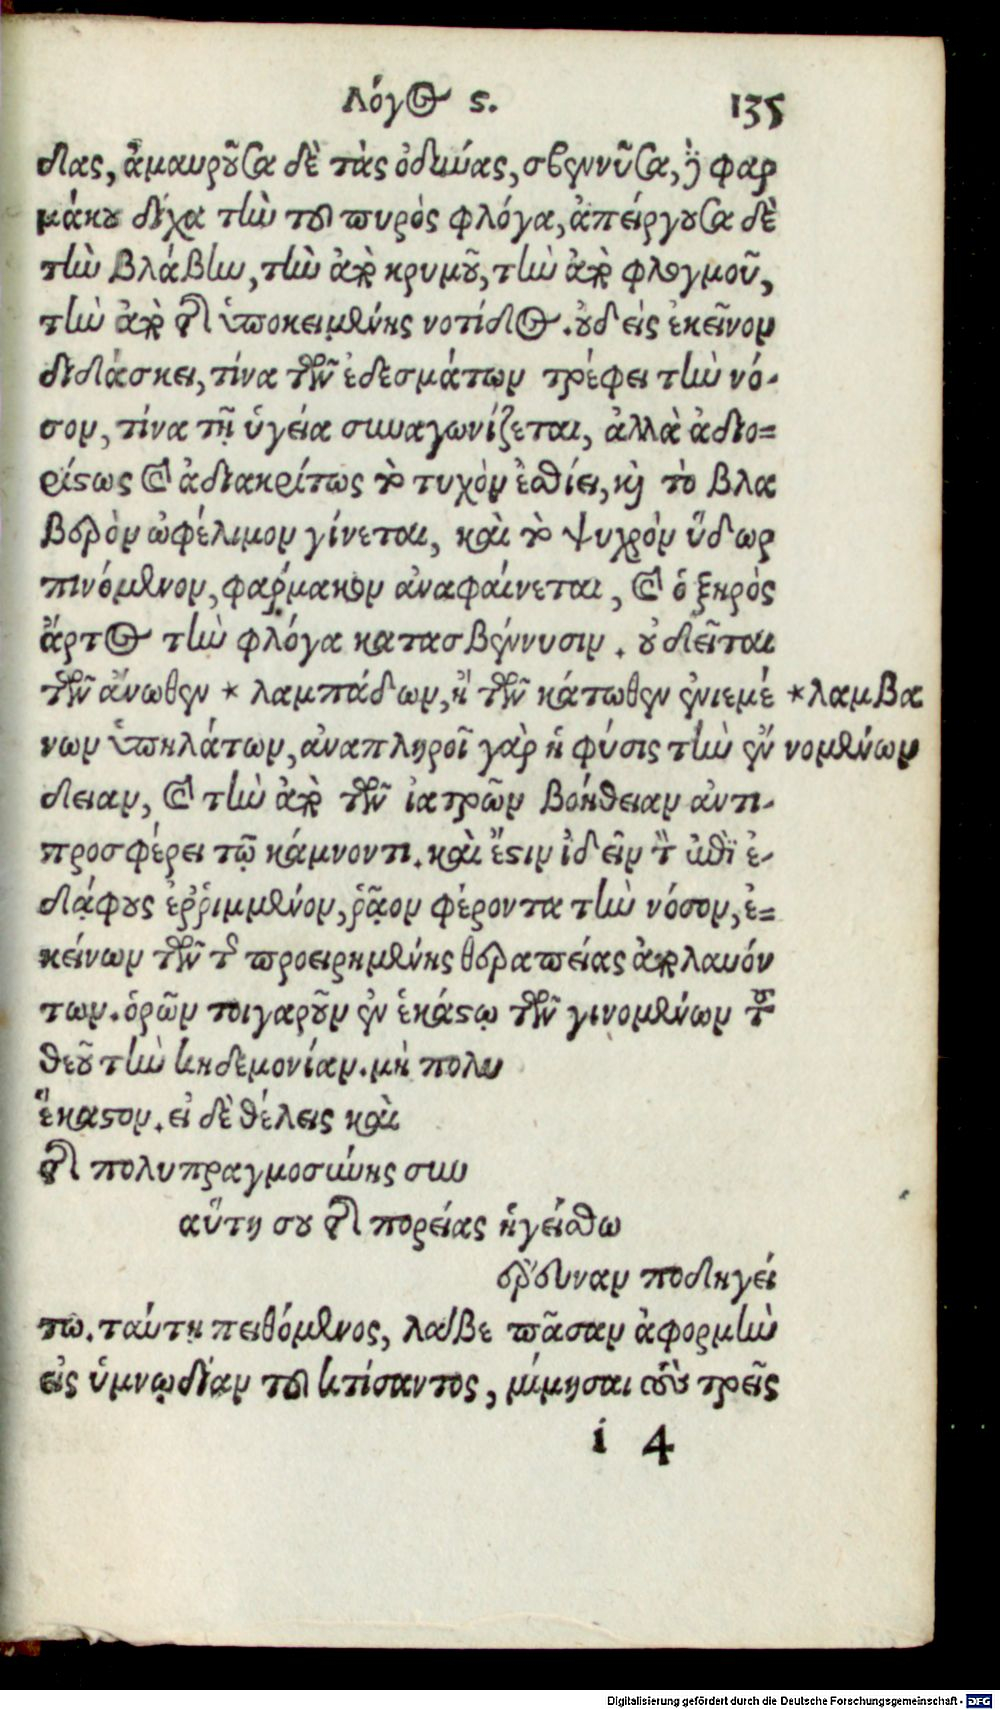 Λόγος ϛ. 135
δίας, ἀμαυροῦσα δὲ τὰς ὀδύνας, σβεννῦσα, ἢ φαρ
μάκου δίχα τὴν τοῦ πυρὸς φλόγα, ἀπείργουσα δὲ
τὴν βλάβην, τὴν ἀπὸ κρυμοῦ, τὴν ἀπὸ φλογμοῦ,
τὴν ἀπὸ τῆς ὑποκειμένης νοτίδος. οὐδεὶς ἐκεῖνον
διδάσκει, τίνα τῶν ἐδεσμάτων τρέφει τὴν νό-
σον, τίνα τῇ ὑγείᾳ συναγωνίζεται, ἀλλὰ ἀδιο=
ρίστως καὶ ἀδιακρίτως τὸ τυχὸν ἐσθίει, καὶ τὸ βλα
βερὸν ὠφέλιμον γίνεται, καὶ τὸ ψυχρὸν ὕδωρ
πινόμενον, φάρμακον ἀναφαίνεται, καὶ ὁ ξηρὸς
ἄρτος τὴν φλόγα κατασβέννυσιν. οὐ δεῖται
τῶν ἄνωθεν * λαμπάδων, ἢ τῶν κάτωθεν ἐνιεμέ * λαμβα
νων ὑπηλάτων, ἀναπληροῖ γὰρ ἡ φύσις τὴν ἔν νομένων
δειαν, καὶ τὴν ἀπὸ τῶν ἰατρῶν βοήθειαν ἀντι-
προσφέρει τῷ κάμνοντι. καὶ ἔστιν ἰδεῖν τὸν ἐπὶ ἐ-
δάφους ἐῤῥιμμένον, ῥᾷον φέροντα τὴν νόσον, ἐ=
κείνων τῶν τῆς προειρημένης θεραπείας ἀπολαυόν
των. ὁρῶν τοιγαροῦν ἐν ἑκάστῳ τῶν γινομένων τοῦ
θεοῦ τὴν κηδεμονίαν. μὴ πολυ
ἕκαστον. εἰ δὲ θέλεις καὶ
τῆς πολυπραγμοσύνης συν
αὕτη σου τῆς πορείας ἡγείσθω
ἔρευναν ποδηγεί
τω. ταύτῃ πειθόμενος, λάβε πᾶσαν ἀφορμὴν
εἰς ὑμνῳδίαν τοῦ κτίσαντος, μίμησαι τοὺς τρεῖς
i 4
Digitalisierung gefördert durch die Deutsche Forschungsgemeinschaft - DFG